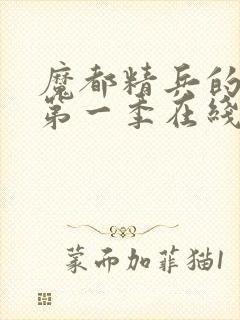 魔都精兵的
第一季在线
蒙而加菲猫1